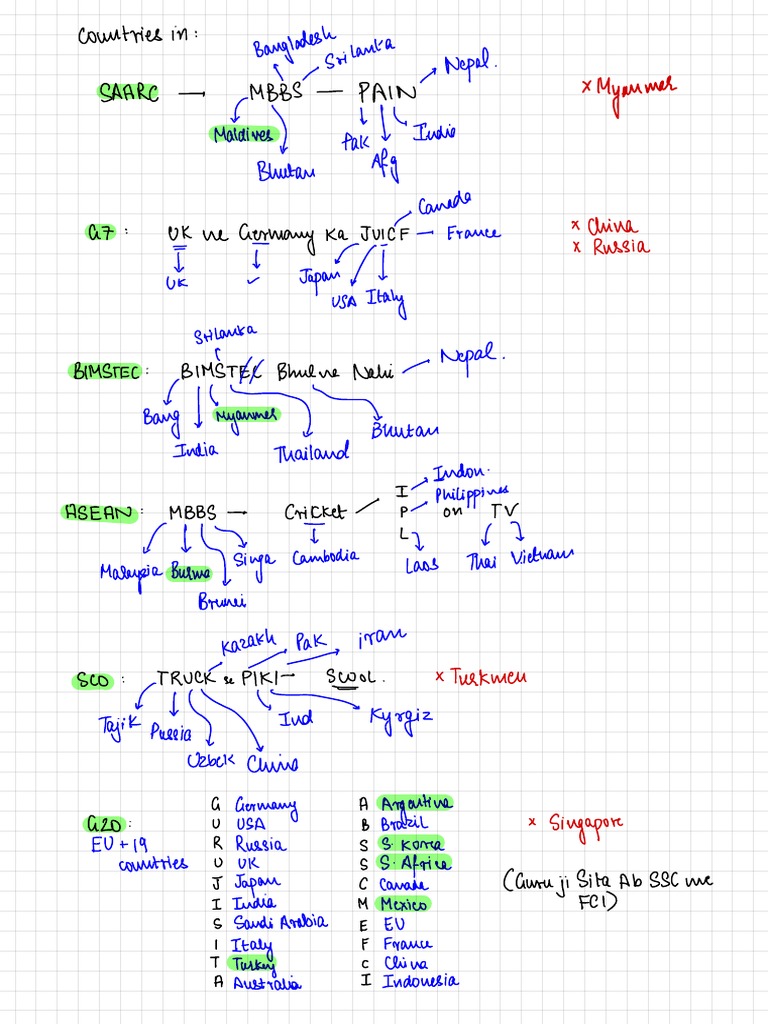 Countries in:
Bangladesh
Srilanka
Nepal.
SAARC → MBBS — PAIN
× Myanmar
Maldives
Pak
India
Bhutan
Afg
Canada
G7: UK ne Germany ka JUICF — France
× China
× Russia
UK
✓
Japan
USA
Italy
Srilanka
BIMSTEC: BIMSTEC Bhul ne Nahi
Nepal.
Bang
Myanmar
Bhutan
India
Thailand
Indon.
I
Philippines
ASEAN: MBBS → Cricket
P on TV
L
Malaysia
Burma
Singa
Cambodia
Laos
Thai
Vietnam
Brunei
Kazakh
Pak
iran
SCO: TRUCK se PIKI — SCOOL.
× Turkmen
Tajik
Russia
Ind
Kyrgiz
Uzbek
China
G20:
EU + 19
countries
G Germany
U USA
R Russia
U UK
J Japan
I India
S Saudi Arabia
I Italy
T Turkey
A Australia
A Argentina
B Brazil
S S. Korea
S S. Africa
C Canada
M Mexico
E EU
F France
C China
I Indonesia
× Singapore
(Guru ji Sita Ab SSC me
FCI)